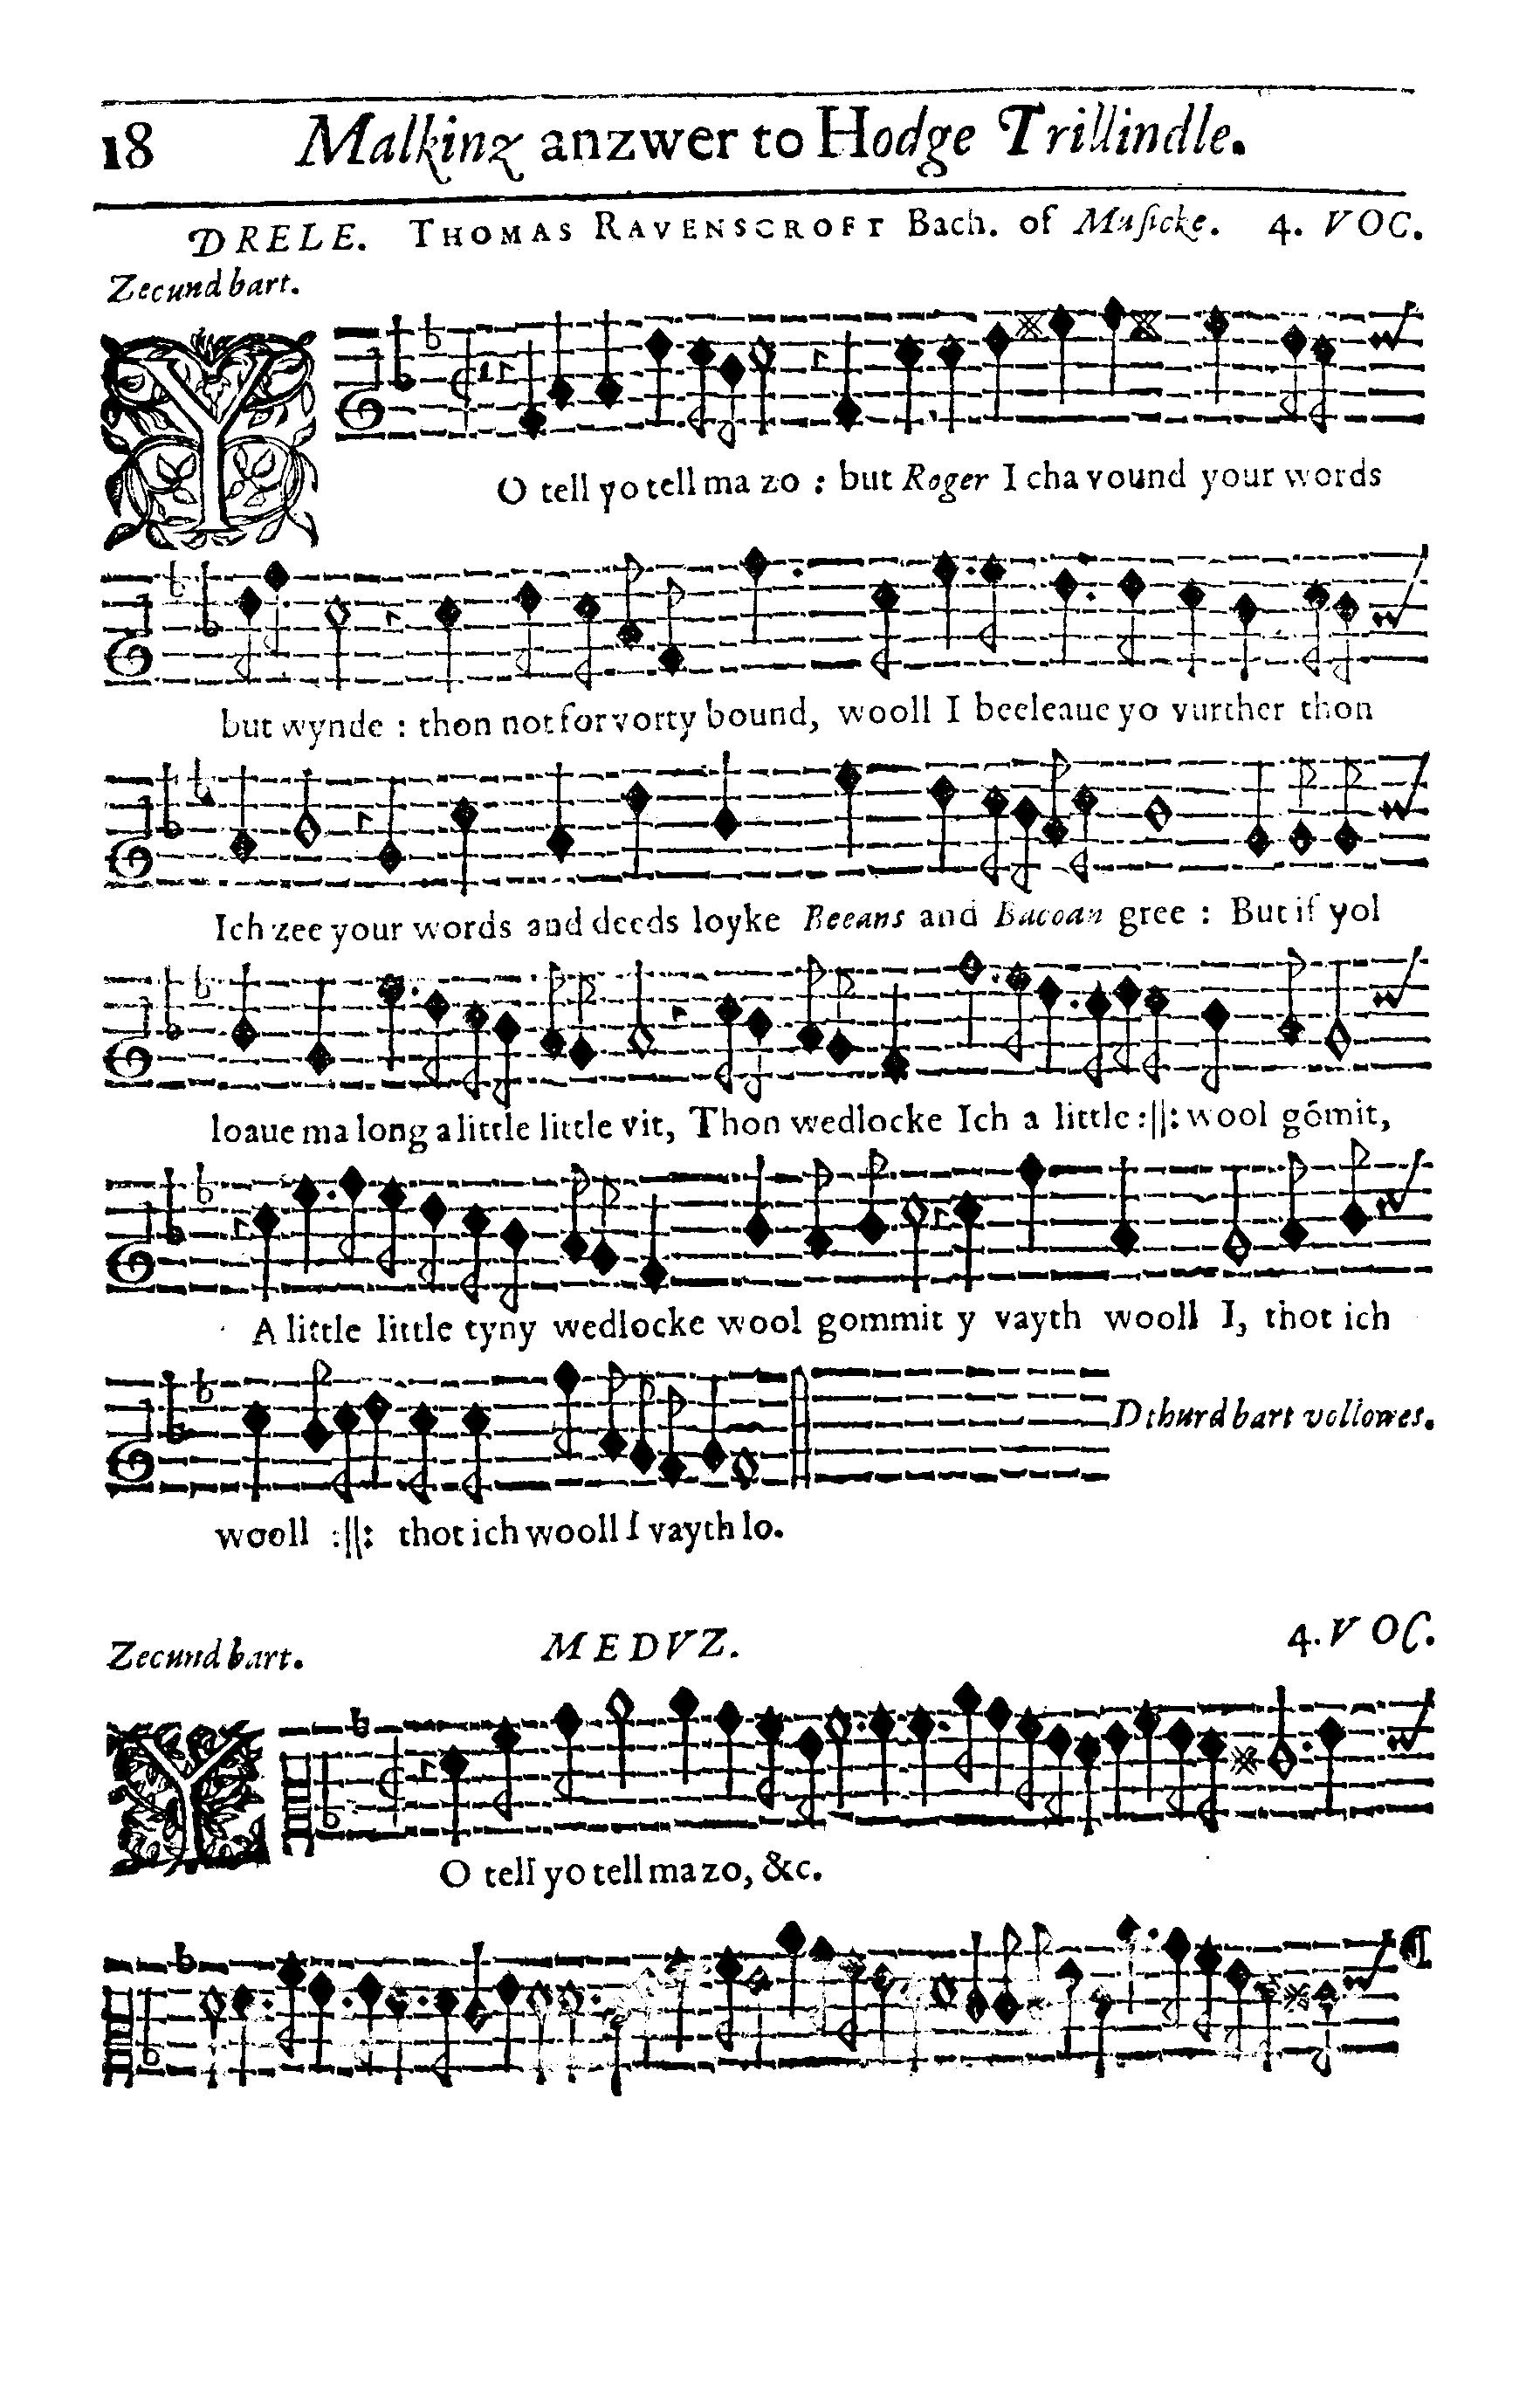 18 Malkinz anzwer to Hodge Trillindle.
DRELE. THOMAS RAVENSCROFT Bach. of Muſicke. 4. VOC.
Zecund bart.
YO tell yo tell ma zo : but Roger I cha vound your words
but wynde : thon not for vorty bound, wooll I beeleaue yo vurther thon
Ich zee your words and deeds loyke Beeans and Bacoan gree : But if yol
loaue ma long a little little vit, Thon wedlocke Ich a little :||: wool gōmit,
A little little tyny wedlocke wool gommit y vayth wooll I, thot ich
Dthurd bart vollowes.
wooll :||: thot ich wooll I vayth lo.
Zecund bart. MEDVZ. 4. VOC.
YO tell yo tell ma zo, &c.